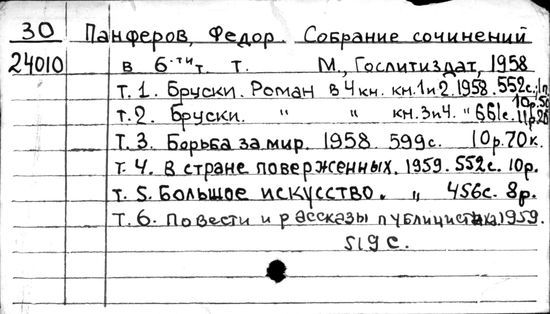 30 Панферов, Федор. Собрание сочинений
24010 в 6-ти т. т. М., Гослитиздат, 1958
т. 1. Бруски. Роман в 4 кн. кн. 1 и 2. 1958. 552с.
10р.50
т. 2. Бруски. " " кн. 3 и 4. " 661с.
т. 3. Борьба за мир. 1958. 599с. 10р.70к.
т. 4. В стране поверженных. 1959. 552с. 10р.
т. 5. Большое искусство. " 456с. 8р.
т. 6. Повести и рассказы публицистика. 1959.
519 с.